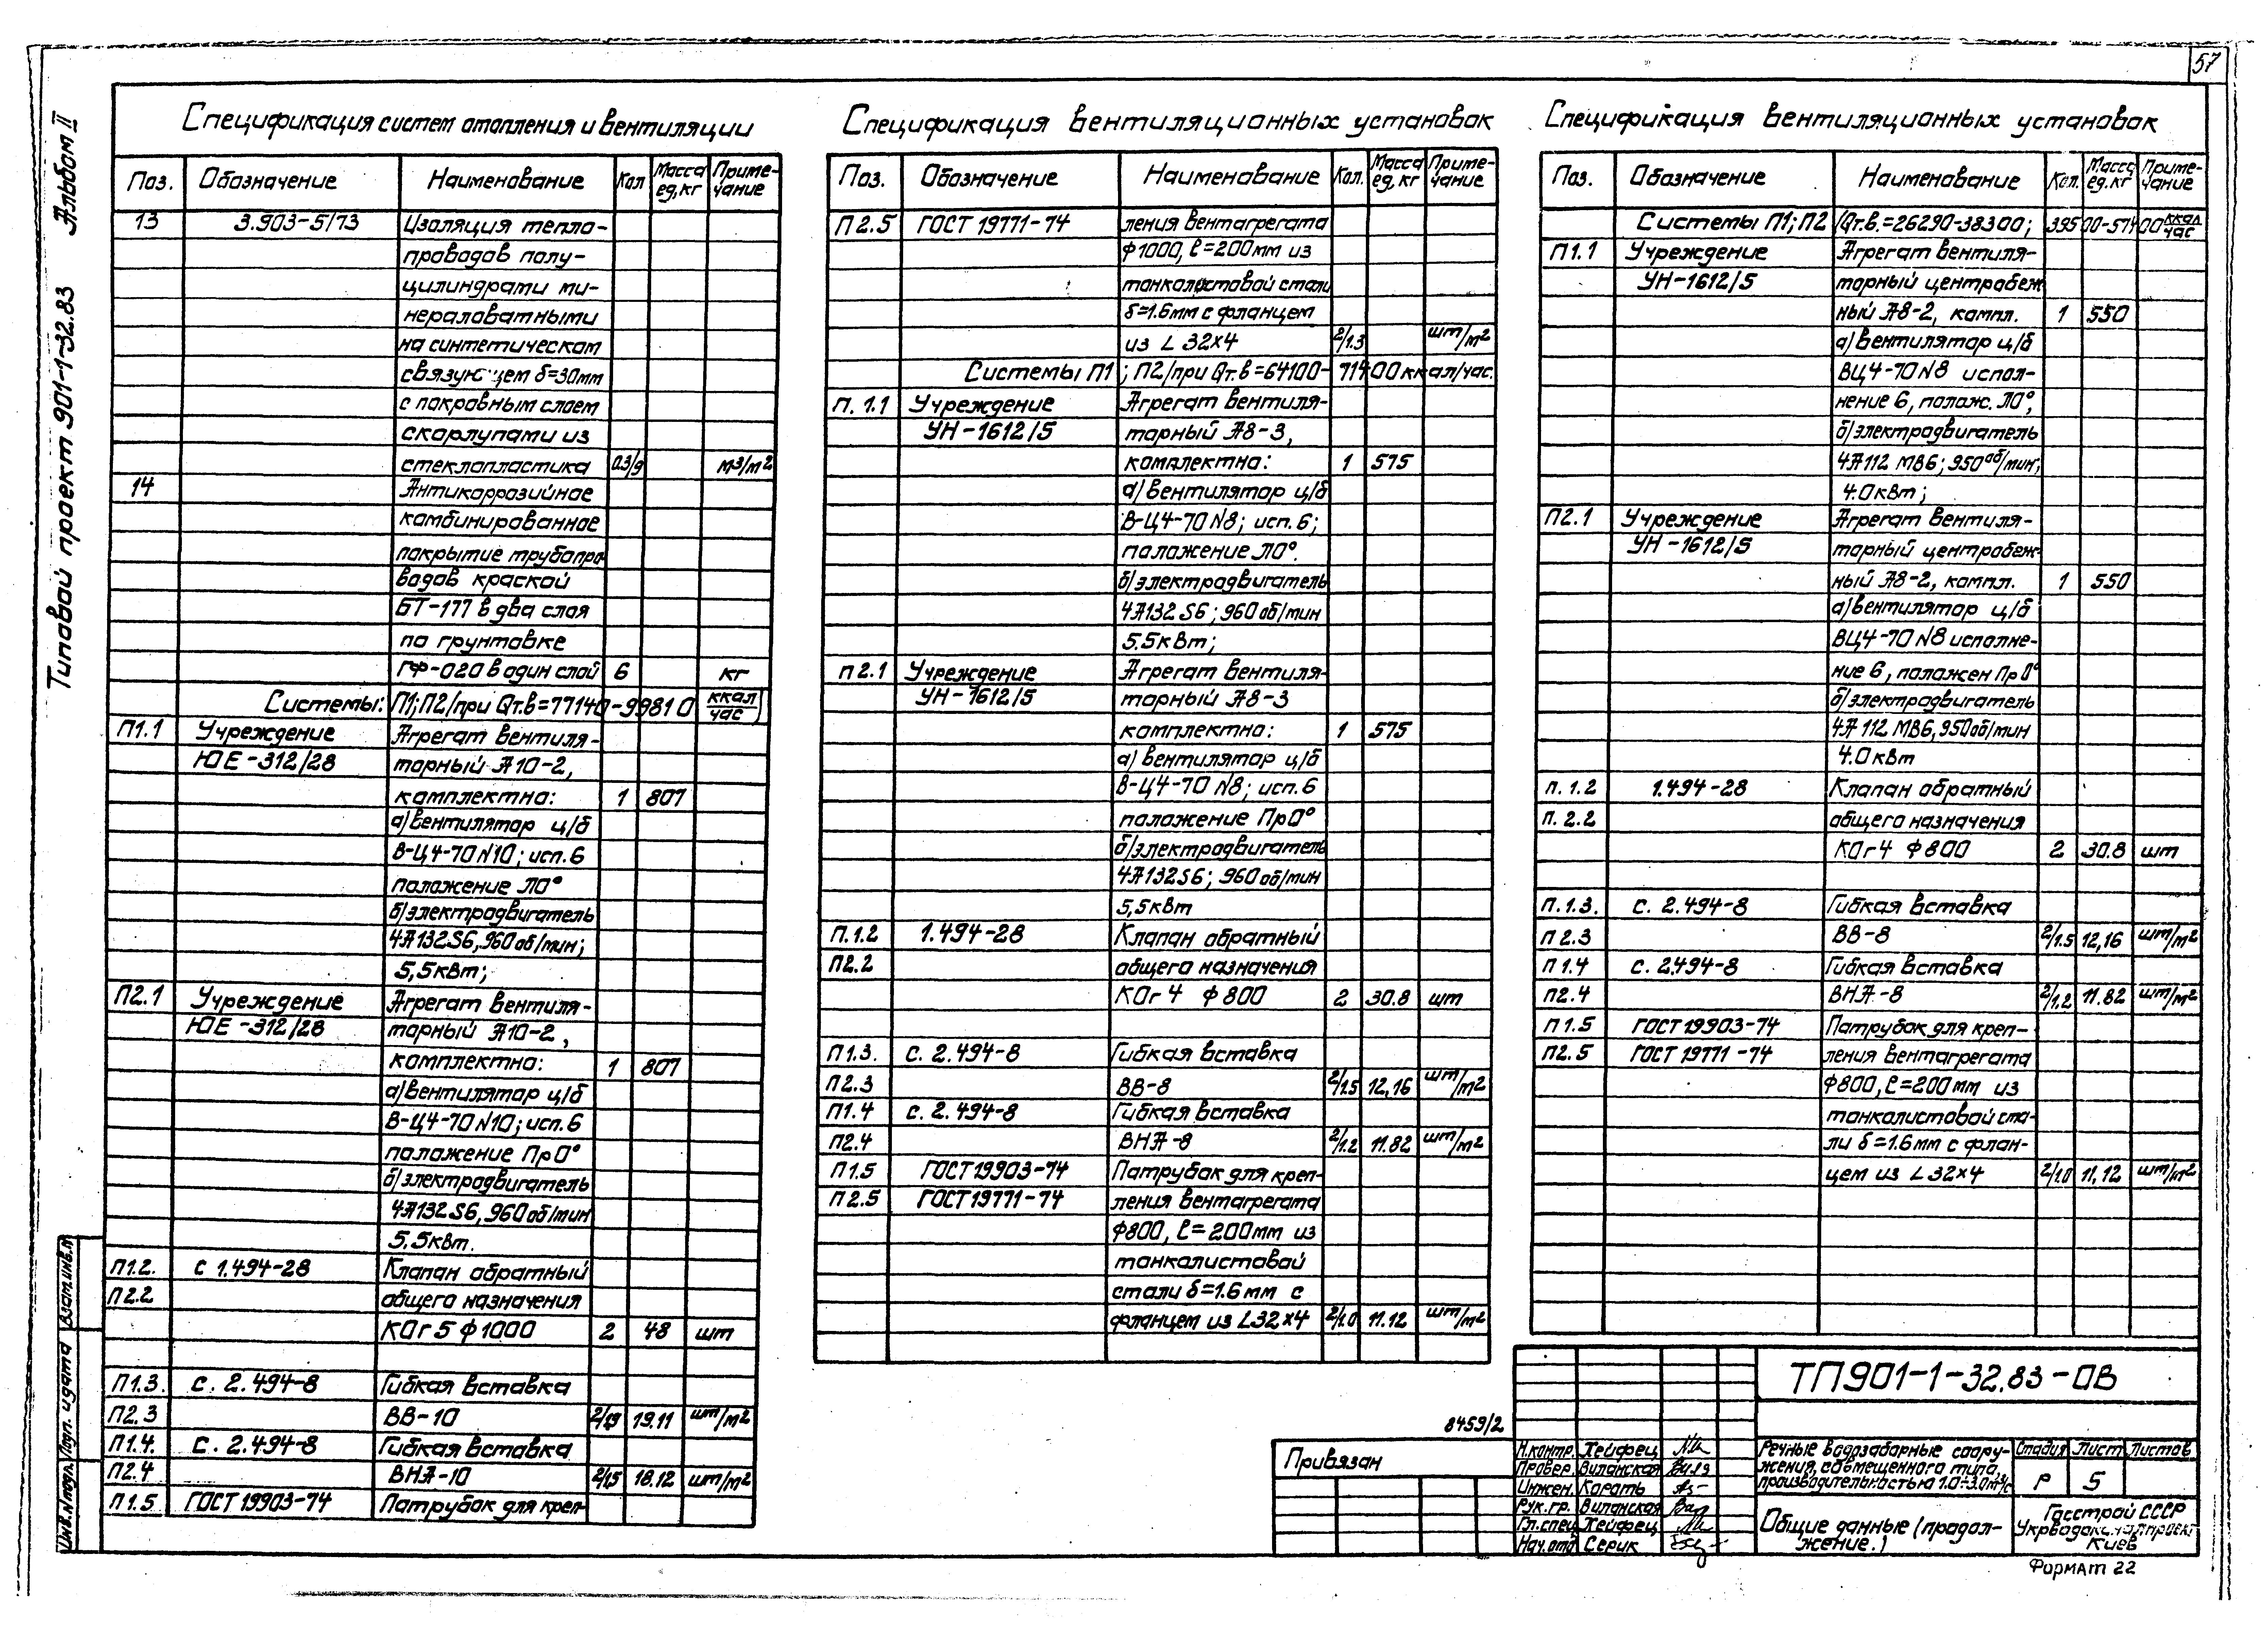 57
Типовой проект 901-1-32.83 Альбом II
Спецификация систем отопления и вентиляции
Поз. Обозначение Наименование Кол Масса ед,кг Приме-чание
13 3.903-5/73 Изоляция тепло-
проводов полу-
цилиндрами ми-
нераловатными
на синтетическом
связующем δ=30мм
с покровным слоем
скорлупами из
стеклопластика 0.3/9 м³/м²
14 Антикоррозийное
комбинированное
покрытие трубопро
водов краской
БТ-177 в два слоя
по грунтовке
ГФ-020 в один слой 6 кг
Системы: П1;П2/при Qт.в=77140-99810 ккал/час)
П1.1 Учреждение Агрегат вентиля-
ЮЕ-312/28 торный А10-2,
комплектно: 1 807
а) вентилятор ц/б
В-Ц4-70 N10; исп.6
положение Л0°
б) электродвигатель
4А132S6, 960 об/мин;
5,5кВт;
П2.1 Учреждение Агрегат вентиля-
ЮЕ-312/28 торный А10-2,
комплектно: 1 807
а) вентилятор ц/б
В-Ц4-70 N10; исп.6
положение Пр0°
б) электродвигатель
4А132S6, 960 об/мин
5.5кВт.
П1.2. с 1.494-28 Клапан обратный
П2.2 общего назначения
КОг 5 ф1000 2 48 шт
П1.3. с. 2.494-8 Гибкая вставка
П2.3 ВВ-10 2/1.9 19.11 шт/м²
П1.4. с. 2.494-8 Гибкая вставка
П2.4 ВНА-10 2/1.5 18.12 шт/м²
П1.5 ГОСТ 19903-74 Патрубок для креп-
Спецификация вентиляционных установок
Поз. Обозначение Наименование Кол. Масса ед,кг Приме-чание
П2.5 ГОСТ 19771-74 ления вентагрегата
ф1000, ℓ=200мм из
тонколистовой стали
δ=1.6мм с фланцем
из L 32×4 2/1.3 шт/м²
Системы П1; П2/при Qт.в=64100-71400 ккал/час.
П. 1.1 Учреждение Агрегат вентиля-
УН-1612/5 торный А8-3,
комплектно: 1 575
а) вентилятор ц/б
В-Ц4-70 N8; исп. 6;
положение Л0°.
б) электродвигатель
4А132 S6; 960 об/мин
5.5кВт;
П2.1 Учреждение Агрегат вентиля-
УН-1612/5 торный А8-3
комплектно: 1 575
а) вентилятор ц/б
В-Ц4-70 N8; исп. 6
положение Пр0°
б) электродвигатель
4А132S6; 960 об/мин
5,5кВт
П.1.2 1.494-28 Клапан обратный
П2.2 общего назначения
КОг 4 ф800 2 30.8 шт
П1.3. с. 2.494-8 Гибкая вставка
П2.3 ВВ-8 2/1.5 12,16 шт/м²
П1.4 с. 2.494-8 Гибкая вставка
П2.4 ВНА-8 2/1.2 11.82 шт/м²
П1.5 ГОСТ 19903-74 Патрубок для креп-
П2.5 ГОСТ 19771-74 ления вентагрегата
ф800, ℓ=200мм из
тонколистовой
стали δ=1.6мм с
фланцем из L32×4 2/1.0 11.12 шт/м²
Спецификация вентиляционных установок
Поз. Обозначение Наименование Кол. Масса ед.кг Приме-чание
Системы П1; П2 /Qт.в.=26290-38300; 39500-57400 ккал/час
П1.1 Учреждение Агрегат вентиля-
УН-1612/5 торный центробеж
ный А8-2, компл. 1 550
а) вентилятор ц/б
ВЦ4-70 N8 испол-
нение 6, полож. Л0°,
б) электродвигатель
4А112 МВ6; 950 об/мин;
4.0кВт;
П2.1 Учреждение Агрегат вентиля-
УН-1612/5 торный центробеж-
ный А8-2, компл. 1 550
а) вентилятор ц/б
ВЦ4-70 N8 исполне-
ние 6, положен Пр0°
б) электродвигатель
4А 112 МВ6, 950 об/мин
4.0кВт
П. 1.2 1.494-28 Клапан обратный
П. 2.2 общего назначения
КОг 4 ф800 2 30.8 шт
П.1.3. с. 2.494-8 Гибкая вставка
П2.3 ВВ-8 2/1.5 12,16 шт/м²
П1.4 с. 2.494-8 Гибкая вставка
П2.4 ВНА-8 2/1.2 11.82 шт/м²
П1.5 ГОСТ 19903-74 Патрубок для креп-
П2.5 ГОСТ 19771-74 ления вентагрегата
ф800, ℓ=200мм из
тонколистовой ста-
ли δ=1.6мм с флан-
цем из L32×4 2/1.0 11,12 шт/м²
8459/2
Привязан
ТП901-1-32.83-ОВ
Н.контр. Хейфец
Провер. Виланская
Инжен. Корать
Рук.гр. Виланская
Гл.спец Хейфец
Нач.отд Серик
Речные водозаборные соору-
жения, совмещенного типа,
производительностью 1.0÷3.0м³/с
Стадия Лист Листов
Р 5
Общие данные (продол-
жение.)
Госстрой СССР
Укрводоканалпроект
Киев
Формат 22
Инв.Nподл. Подп. и дата Взам.инв.N